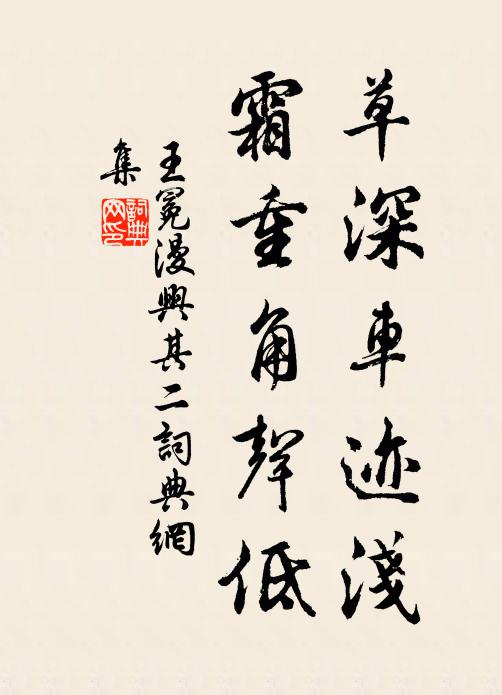 草深車迹淺
霜重角聲低
王冕漫興其二詞典網
集
詞典
网印